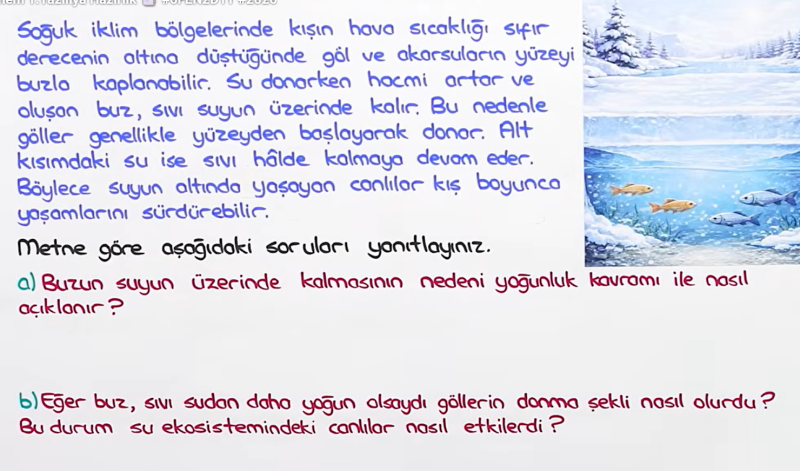 Soğuk iklim bölgelerinde kışın hava sıcaklığı sıfır
derecenin altına düştüğünde göl ve akarsuların yüzeyi
buzla kaplanabilir. Su donarken hacmi artar ve
oluşan buz, sıvı suyun üzerinde kalır. Bu nedenle
göller genellikle yüzeyden başlayarak donar. Alt
kısımdaki su ise sıvı hâlde kalmaya devam eder.
Böylece suyun altında yaşayan canlılar kış boyunca
yaşamlarını sürdürebilir.
Metne göre aşağıdaki soruları yanıtlayınız.
a) Buzun suyun üzerinde kalmasının nedeni yoğunluk kavramı ile nasıl
açıklanır?
b) Eğer buz, sıvı sudan daha yoğun olsaydı göllerin donma şekli nasıl olurdu?
Bu durum su ekosistemindeki canlılar nasıl etkilerdi?